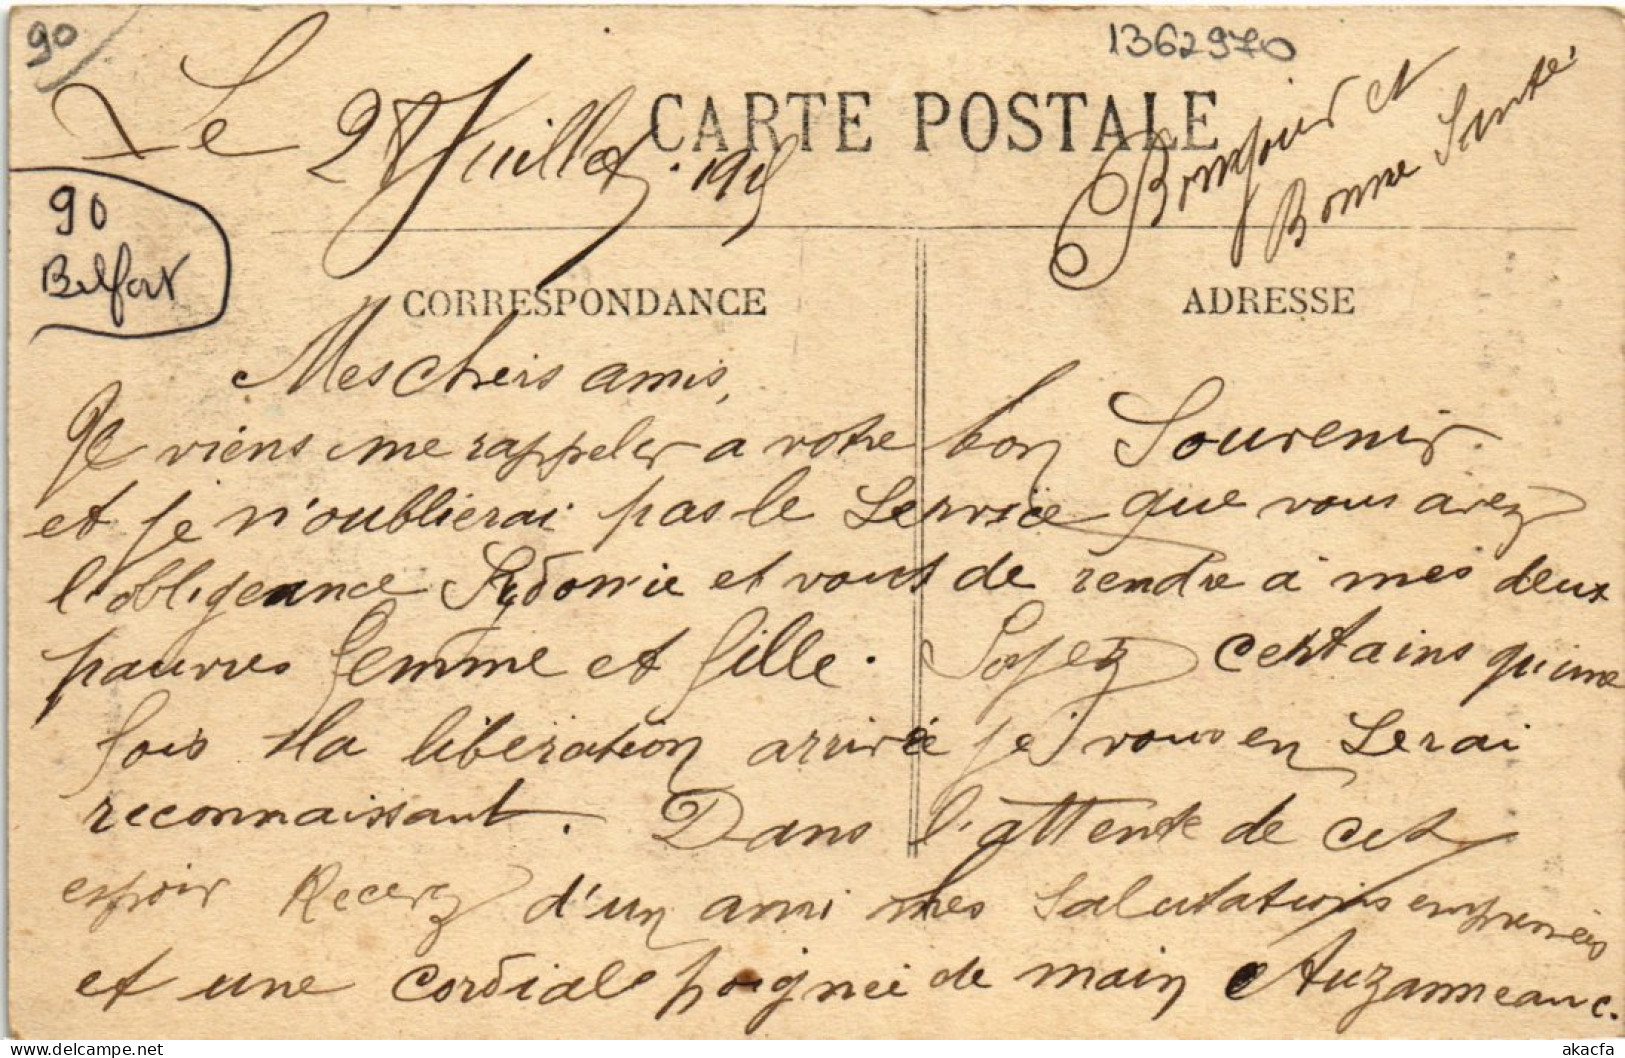 90
1362970
Le 28 Juillet 1915
CARTE POSTALE
Bonjour et
Bonne Sante!
90
Belfort
CORRESPONDANCE
ADRESSE
Mes chers amis,
Je viens me rappeler a votre bon Souvenir.
et je n'oublierai pas le Service que vous avez
l'obligeance Sydonie et vous de rendre à mes deux
pauvres femme et fille. Soyez certains qu'une
fois la libération arrivée je vous en serai
reconnaissant. Dans l'attente de cet
espoir Recevez d'un ami mes Salutations empressées
et une cordiale poignée de main Auzanneau c.
akacfa